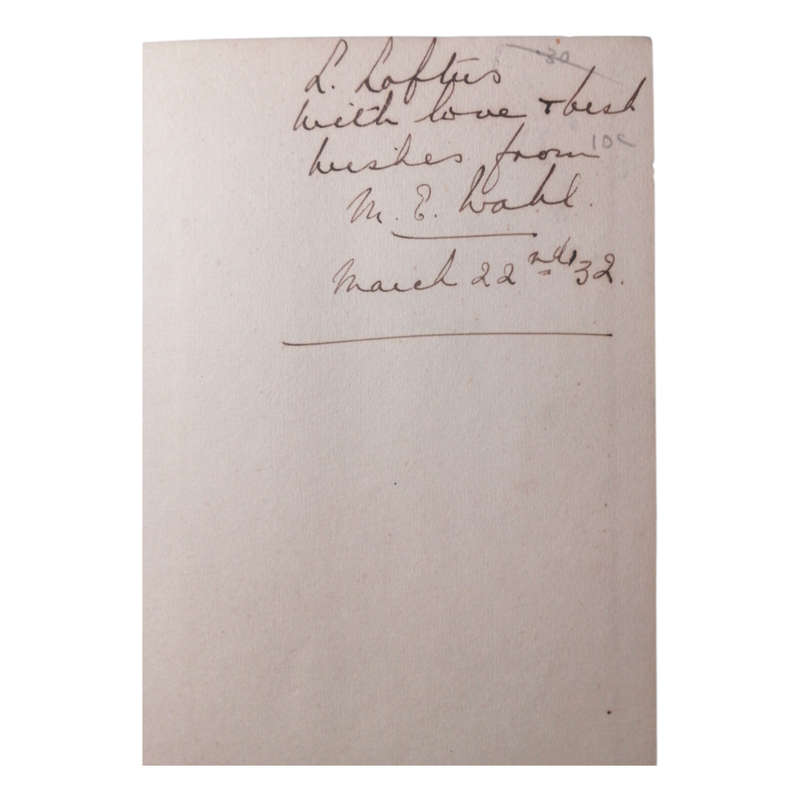 L. Loftus
30
with love & best
wishes from
10c
M. E. Wahl.
March 22nd, 32.